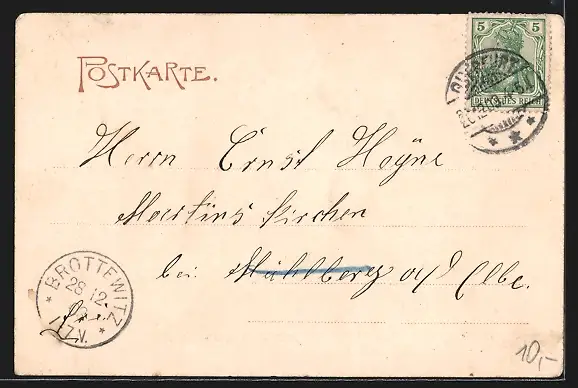 POSTKARTE.
5 5
DEUTSCHES REICH
Herrn Ernst Heyne
Martinskirchen
bei Mühlberg a/ Elbe.
BROTTEWITZ
28 12.
7-8V.
frei
10,-